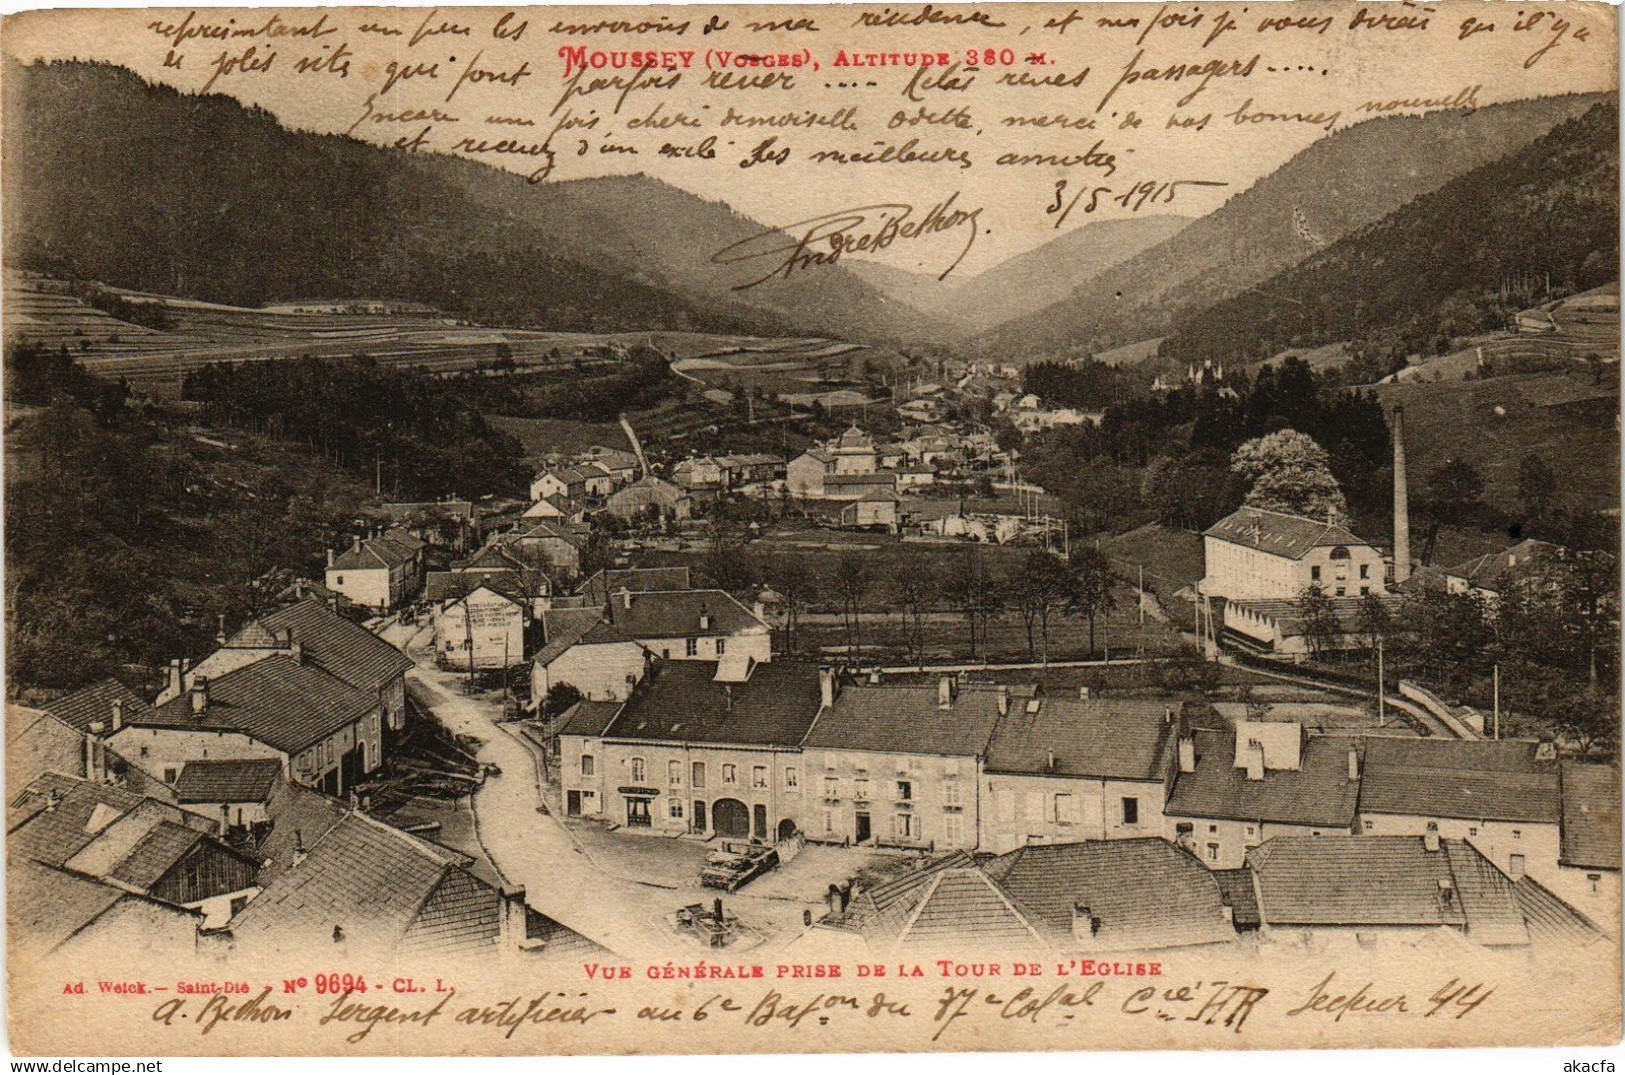 représentant un peu les environs de ma résidence, et ma fois je vous dirais qu'il y a
de jolis site qui font parfois rever .... Helas rêves passagers .....
MOUSSEY (VOSGES), ALTITUDE 380 M.
Encore une fois, cheré demoiselle Odette, merci de vos bonnes nouvelles
et recevez d'un exilé Ses meilleures amitiés
3/5-1915
André Bethon
VUE GÉNÉRALE PRISE DE LA TOUR DE L'EGLISE
Ad. Weick.— Saint-Dié - N° 9694 - CL. L.
A. Bethon Sergent artificier au 6e Bat on du 37e Colal Cie HR Secteur 44
akacfa